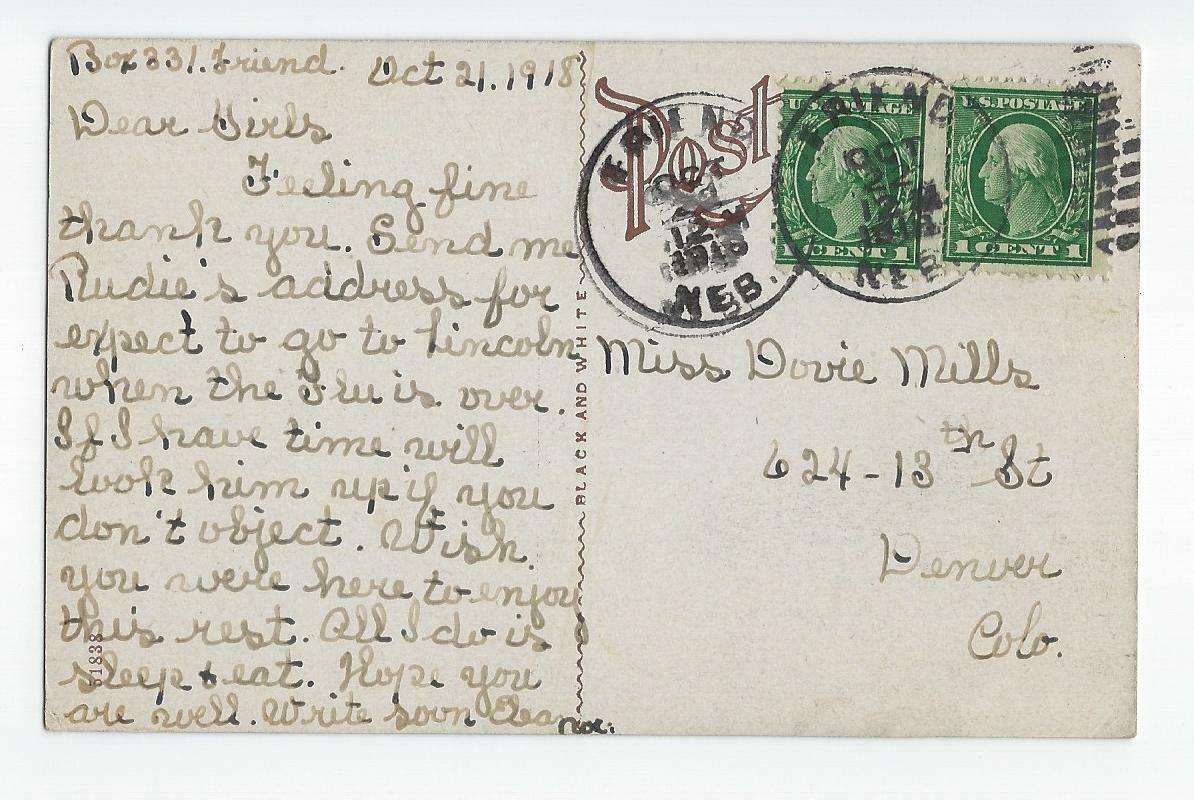 Box 331. Friend. Oct 21. 1918
Dear Girls
Feeling fine
thank you. Send me
Rudie's address for
expect to go to Lincoln
when the Flu is over.
If I have time will
look him up if you
don't object. Wish
you were here to enjoy
this rest. All I do is
sleep & eat. Hope you
are well. Write soon Elea
nor.
51838
BLACK AND WHITE
Post
FRIEND
OCT
12 M
1918
NEB.
FRIEND
OCT
12 M
1918
NEB.
U.S. POSTAGE
CENT 1
U.S. POSTAGE
1 CENT 1
Miss Dovie Mills
624-13th St
Denver
Colo.